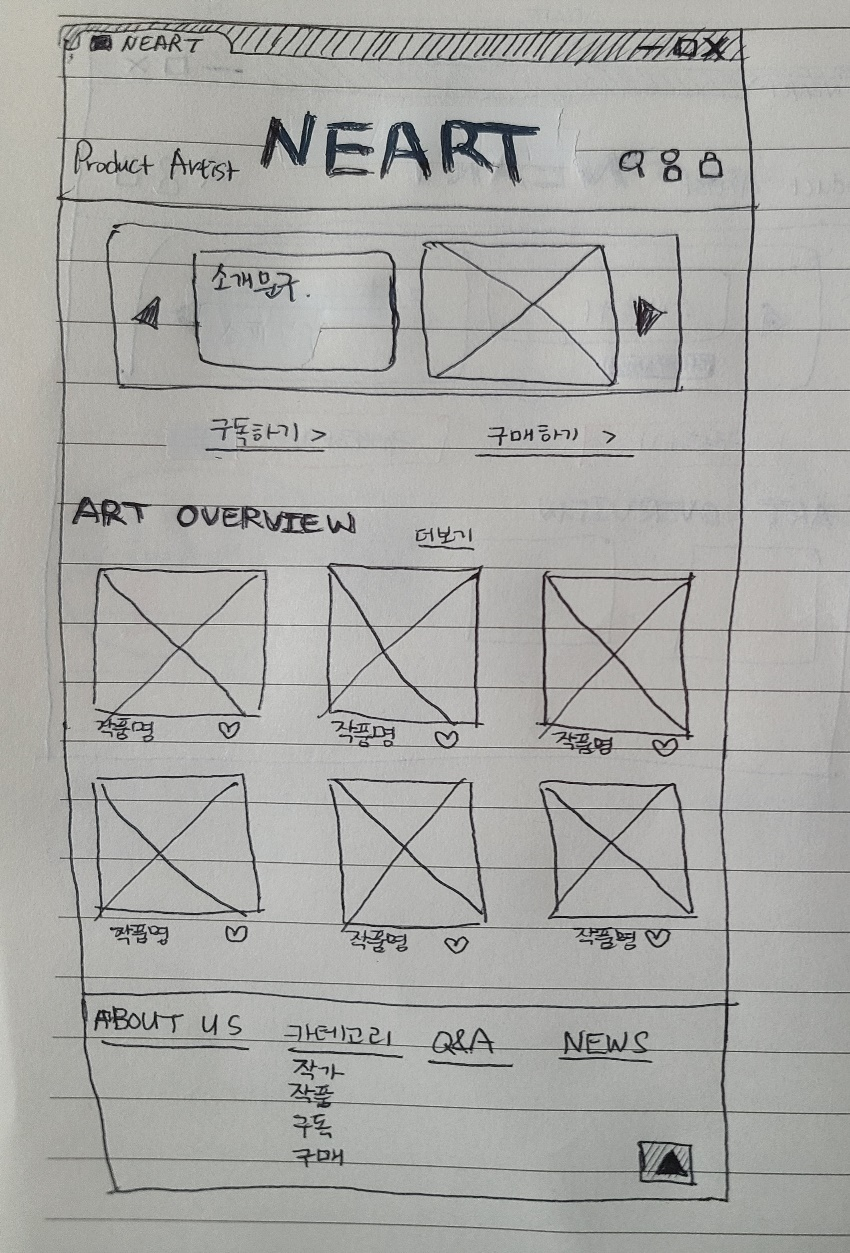 NEART
Product Artist NEART
소개문구.
구독하기 > 구매하기 >
ART OVERVIEW 더보기
작품명 작품명 작품명
작품명 작품명 작품명
ABOUT US 카테고리 Q&A NEWS
작가
작품
구독
구매